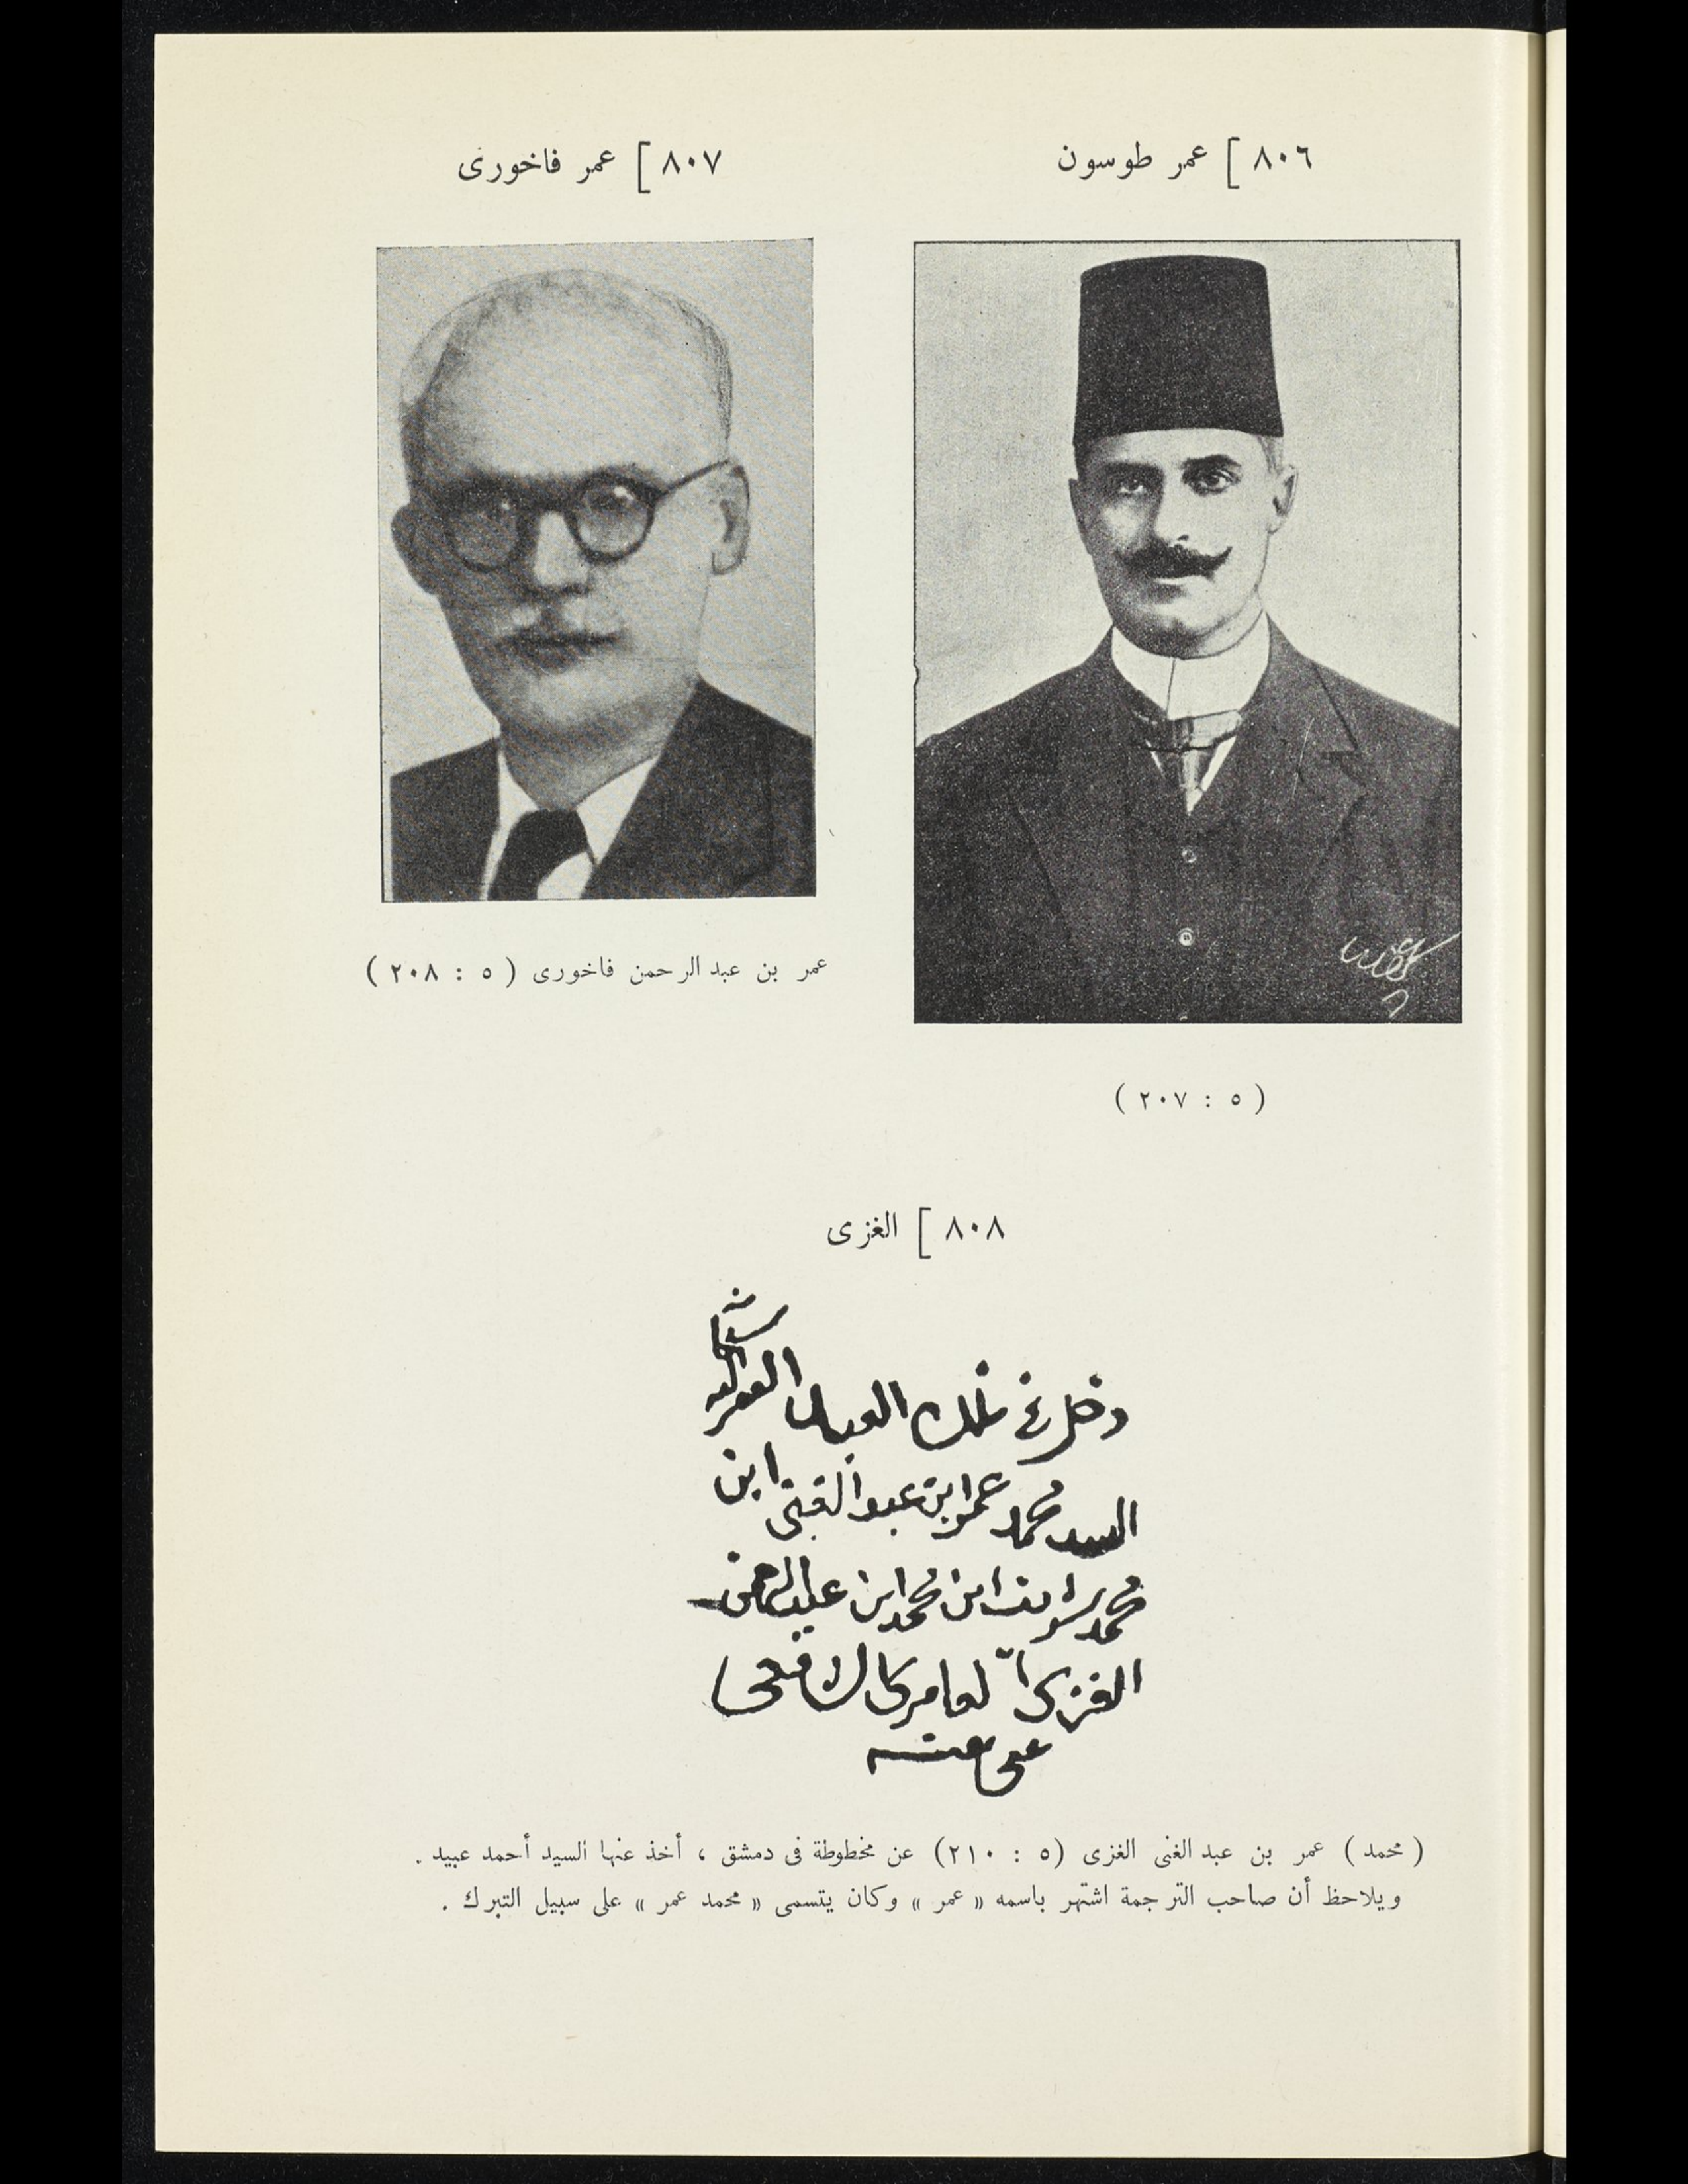 ٨٠٦ [ عمر طوسون
٨٠٧ [ عمر فاخورى
عمر بن عبد الرحمن فاخورى ( ٥ : ٢٠٨ )
( ٥ : ٢٠٧ )
٨٠٨ [ الغزى
دخل فى ملك
السيد محمد عمر ابن عبد الغنى ابن
محمد شريف ابن محمد ابن عبد الرحمن
الغزى العامرى الشافعى
عفى عنه
( محمد ) عمر بن عبد الغنى الغزى (٥ : ٢١٠) عن مخطوطة فى دمشق ، أخذ عنها السيد أحمد عبيد .
ويلاحظ أن صاحب الترجمة اشتهر باسمه « عمر » وكان يتسمى « محمد عمر » على سبيل التبرك .